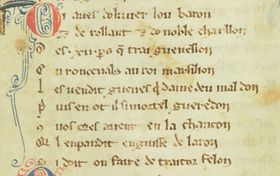 Oi aues doliuer lou baron
de rollant do noble charllon
Des .xii. pers q trai guenellon
En ronceuals au roi marsilion
Les uendit guenes q dame deu mal don
Puis en ot il si mortel gueredon
en la chancon
len pandit en guisse de laron
doit on faire de traitor felon